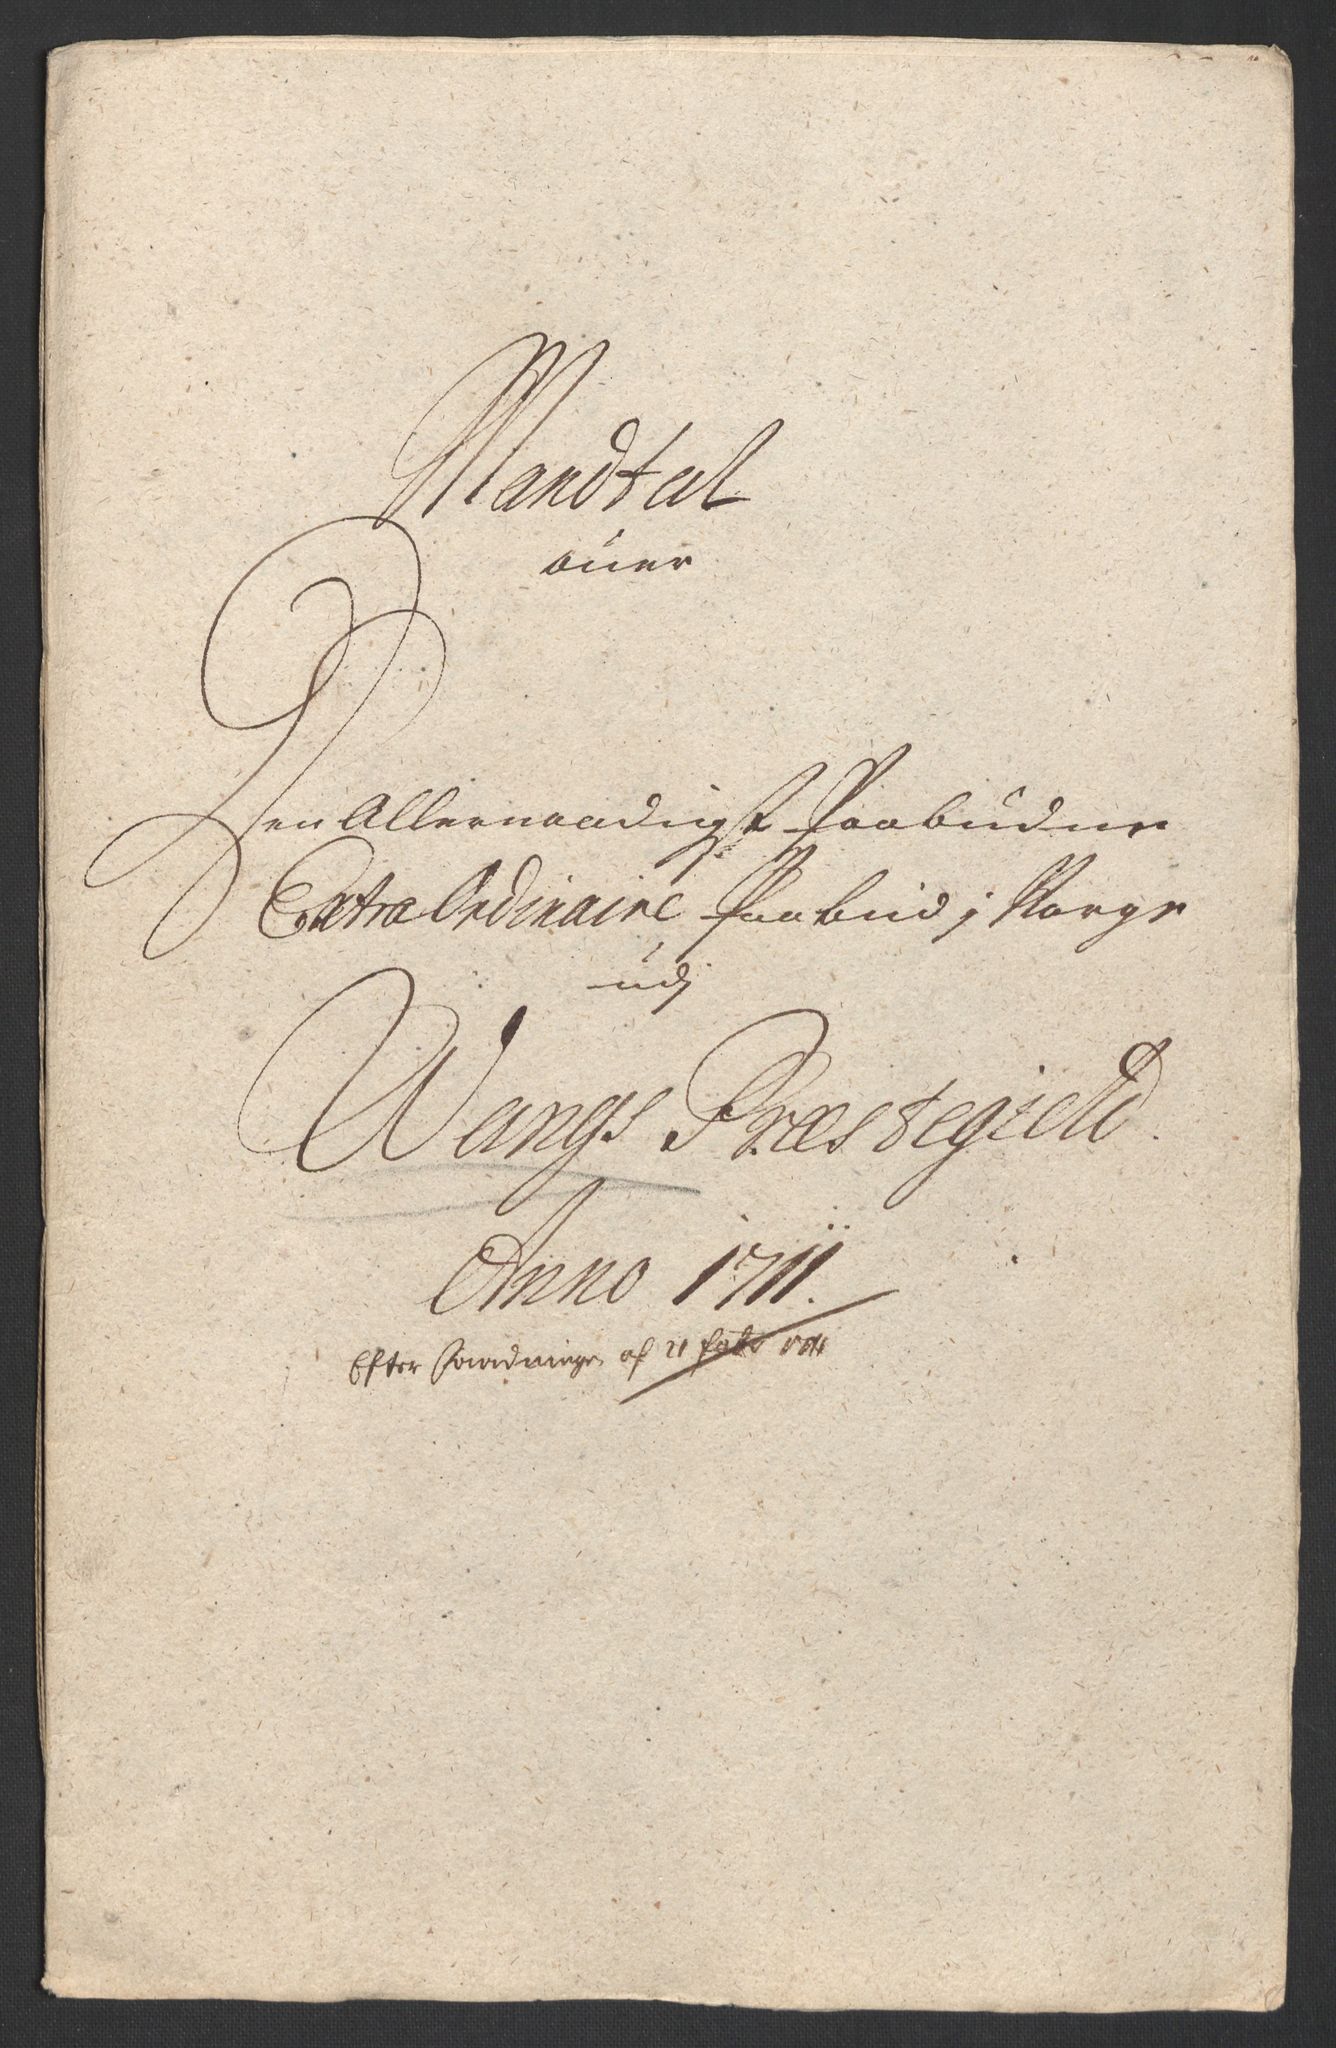 Mandtal
ofuer
Den Allernaadigst Paabudne
Extra Ordinaire Paabud i Norge
udj
Wangs Præstegield.
Anno 1711.
Efter forordningen af 21 febr 1711